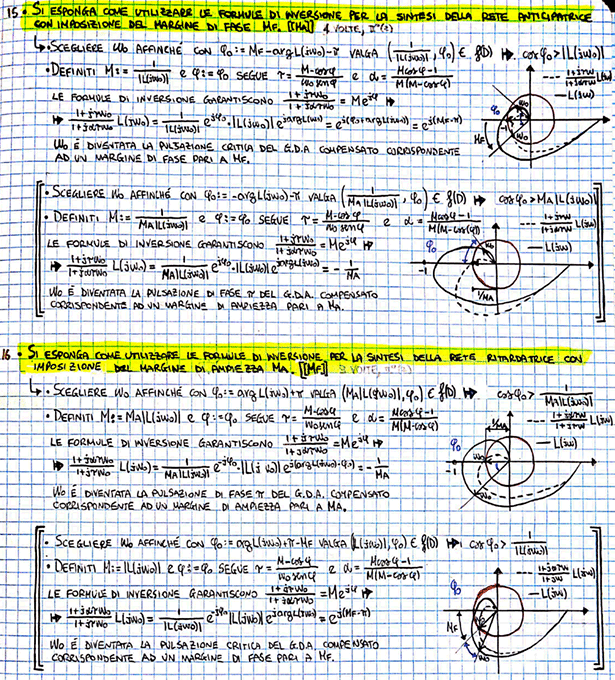 15. SI ESPONGA COME UTILIZZARE LE FORMULE DI INVERSIONE PER LA SINTESI DELLA RETE ANTICIPATRICE
CON IMPOSIZIONE DEL MARGINE DI FASE MF. [[MA]] 4 VOLTE,
↳ • SCEGLIERE ω₀ AFFINCHÉ CON φ₀ := MF - arg L(jω₀) - π VALGA (1/|L(jω₀)|, φ₀) ∈ f(D) ↦ cos φ₀ > |L(jω₀)|
• DEFINITI M := 1/|L(jω₀)| E φ := φ₀ SEGUE τ = (M - cos φ)/(ω₀ sen φ) E α = (M cos φ - 1)/(M(M - cos φ))
LE FORMULE DI INVERSIONE GARANTISCONO (1+jτω₀)/(1+jατω₀) = Me^{jφ}
↦ (1+jτω₀)/(1+jατω₀) L(jω₀) = 1/|L(jω₀)| e^{jφ₀} · |L(jω₀)| e^{j arg L(jω₀)} = e^{j(φ₀ + arg L(jω₀))} = e^{j(MF-π)}
ω₀ È DIVENTATA LA PULSAZIONE CRITICA DEL G.D.A COMPENSATO CORRISPONDENTE
AD UN MARGINE DI FASE PARI A MF.
--- (1+jτω)/(1+jατω) L(jω)
— L(jω)
φ₀
ω₀
MF
• SCEGLIERE ω₀ AFFINCHÉ CON φ₀ := -arg L(jω₀) - π VALGA (1/(MA|L(jω₀)|), φ₀) ∈ f(D) ↦ cos φ₀ > MA|L(jω₀)|
• DEFINITI M := 1/(MA|L(jω₀)|) E φ := φ₀ SEGUE τ = (M - cos φ)/(ω₀ sen φ) E α = (M cos φ - 1)/(M(M - cos φ))
LE FORMULE DI INVERSIONE GARANTISCONO (1+jτω₀)/(1+jατω₀) = Me^{jφ} ↦
↦ (1+jτω₀)/(1+jατω₀) L(jω₀) = 1/(MA|L(jω₀)|) e^{jφ₀} · |L(jω₀)| e^{j arg L(jω₀)} = - 1/MA
ω₀ È DIVENTATA LA PULSAZIONE DI FASE π DEL G.D.A. COMPENSATO
CORRISPONDENTE AD UN MARGINE DI AMPIEZZA PARI A MA.
--- (1+jτω)/(1+jατω) L(jω)
— L(jω)
φ₀
ω₀
-1
1/MA
16. • SI ESPONGA COME UTILIZZARE LE FORMULE DI INVERSIONE PER LA SINTESI DELLA RETE RITARDATRICE CON
IMPOSIZIONE DEL MARGINE DI AMPIEZZA MA. [[MF]] VOLTE,
↳ • SCEGLIERE ω₀ AFFINCHÉ CON φ₀ := arg L(jω₀) + π VALGA (MA|L(jω₀)|, φ₀) ∈ f(D) ↦ cos φ₀ > 1/(MA|L(jω₀)|)
• DEFINITI M := MA|L(jω₀)| E φ := φ₀ SEGUE τ = (M - cos φ)/(ω₀ sen φ) E α = (M cos φ - 1)/(M(M - cos φ))
LE FORMULE DI INVERSIONE GARANTISCONO (1+jτω₀)/(1+jατω₀) = Me^{jφ} ↦
↦ (1+jατω₀)/(1+jτω₀) L(jω₀) = 1/(MA|L(jω₀)|) e^{-jφ₀} · |L(jω₀)| e^{j(arg L(jω₀) - φ₀)} = - 1/MA
ω₀ È DIVENTATA LA PULSAZIONE DI FASE π DEL G.D.A. COMPENSATO
CORRISPONDENTE AD UN MARGINE DI AMPIEZZA PARI A MA.
--- (1+jατω)/(1+jτω) L(jω)
— L(jω)
1/MA
φ₀
-1
ω₀
• SCEGLIERE ω₀ AFFINCHÉ CON φ₀ := arg L(jω₀) + π - MF VALGA (|L(jω₀)|, φ₀) ∈ f(D) ↦ cos φ₀ > 1/|L(jω₀)|
• DEFINITI M := |L(jω₀)| E φ := φ₀ SEGUE τ = (M - cos φ)/(ω₀ sen φ) E α = (M cos φ - 1)/(M(M - cos φ))
LE FORMULE DI INVERSIONE GARANTISCONO (1+jτω₀)/(1+jατω₀) = Me^{jφ} ↦
↦ (1+jατω₀)/(1+jτω₀) L(jω₀) = 1/|L(jω₀)| e^{-jφ₀} |L(jω₀)| e^{j arg L(jω₀)} = e^{j(MF-π)}
ω₀ È DIVENTATA LA PULSAZIONE CRITICA DEL G.D.A. COMPENSATO
CORRISPONDENTE AD UN MARGINE DI FASE PARI A MF.
--- (1+jατω)/(1+jτω) L(jω)
— L(jω)
φ₀
MF
ω₀